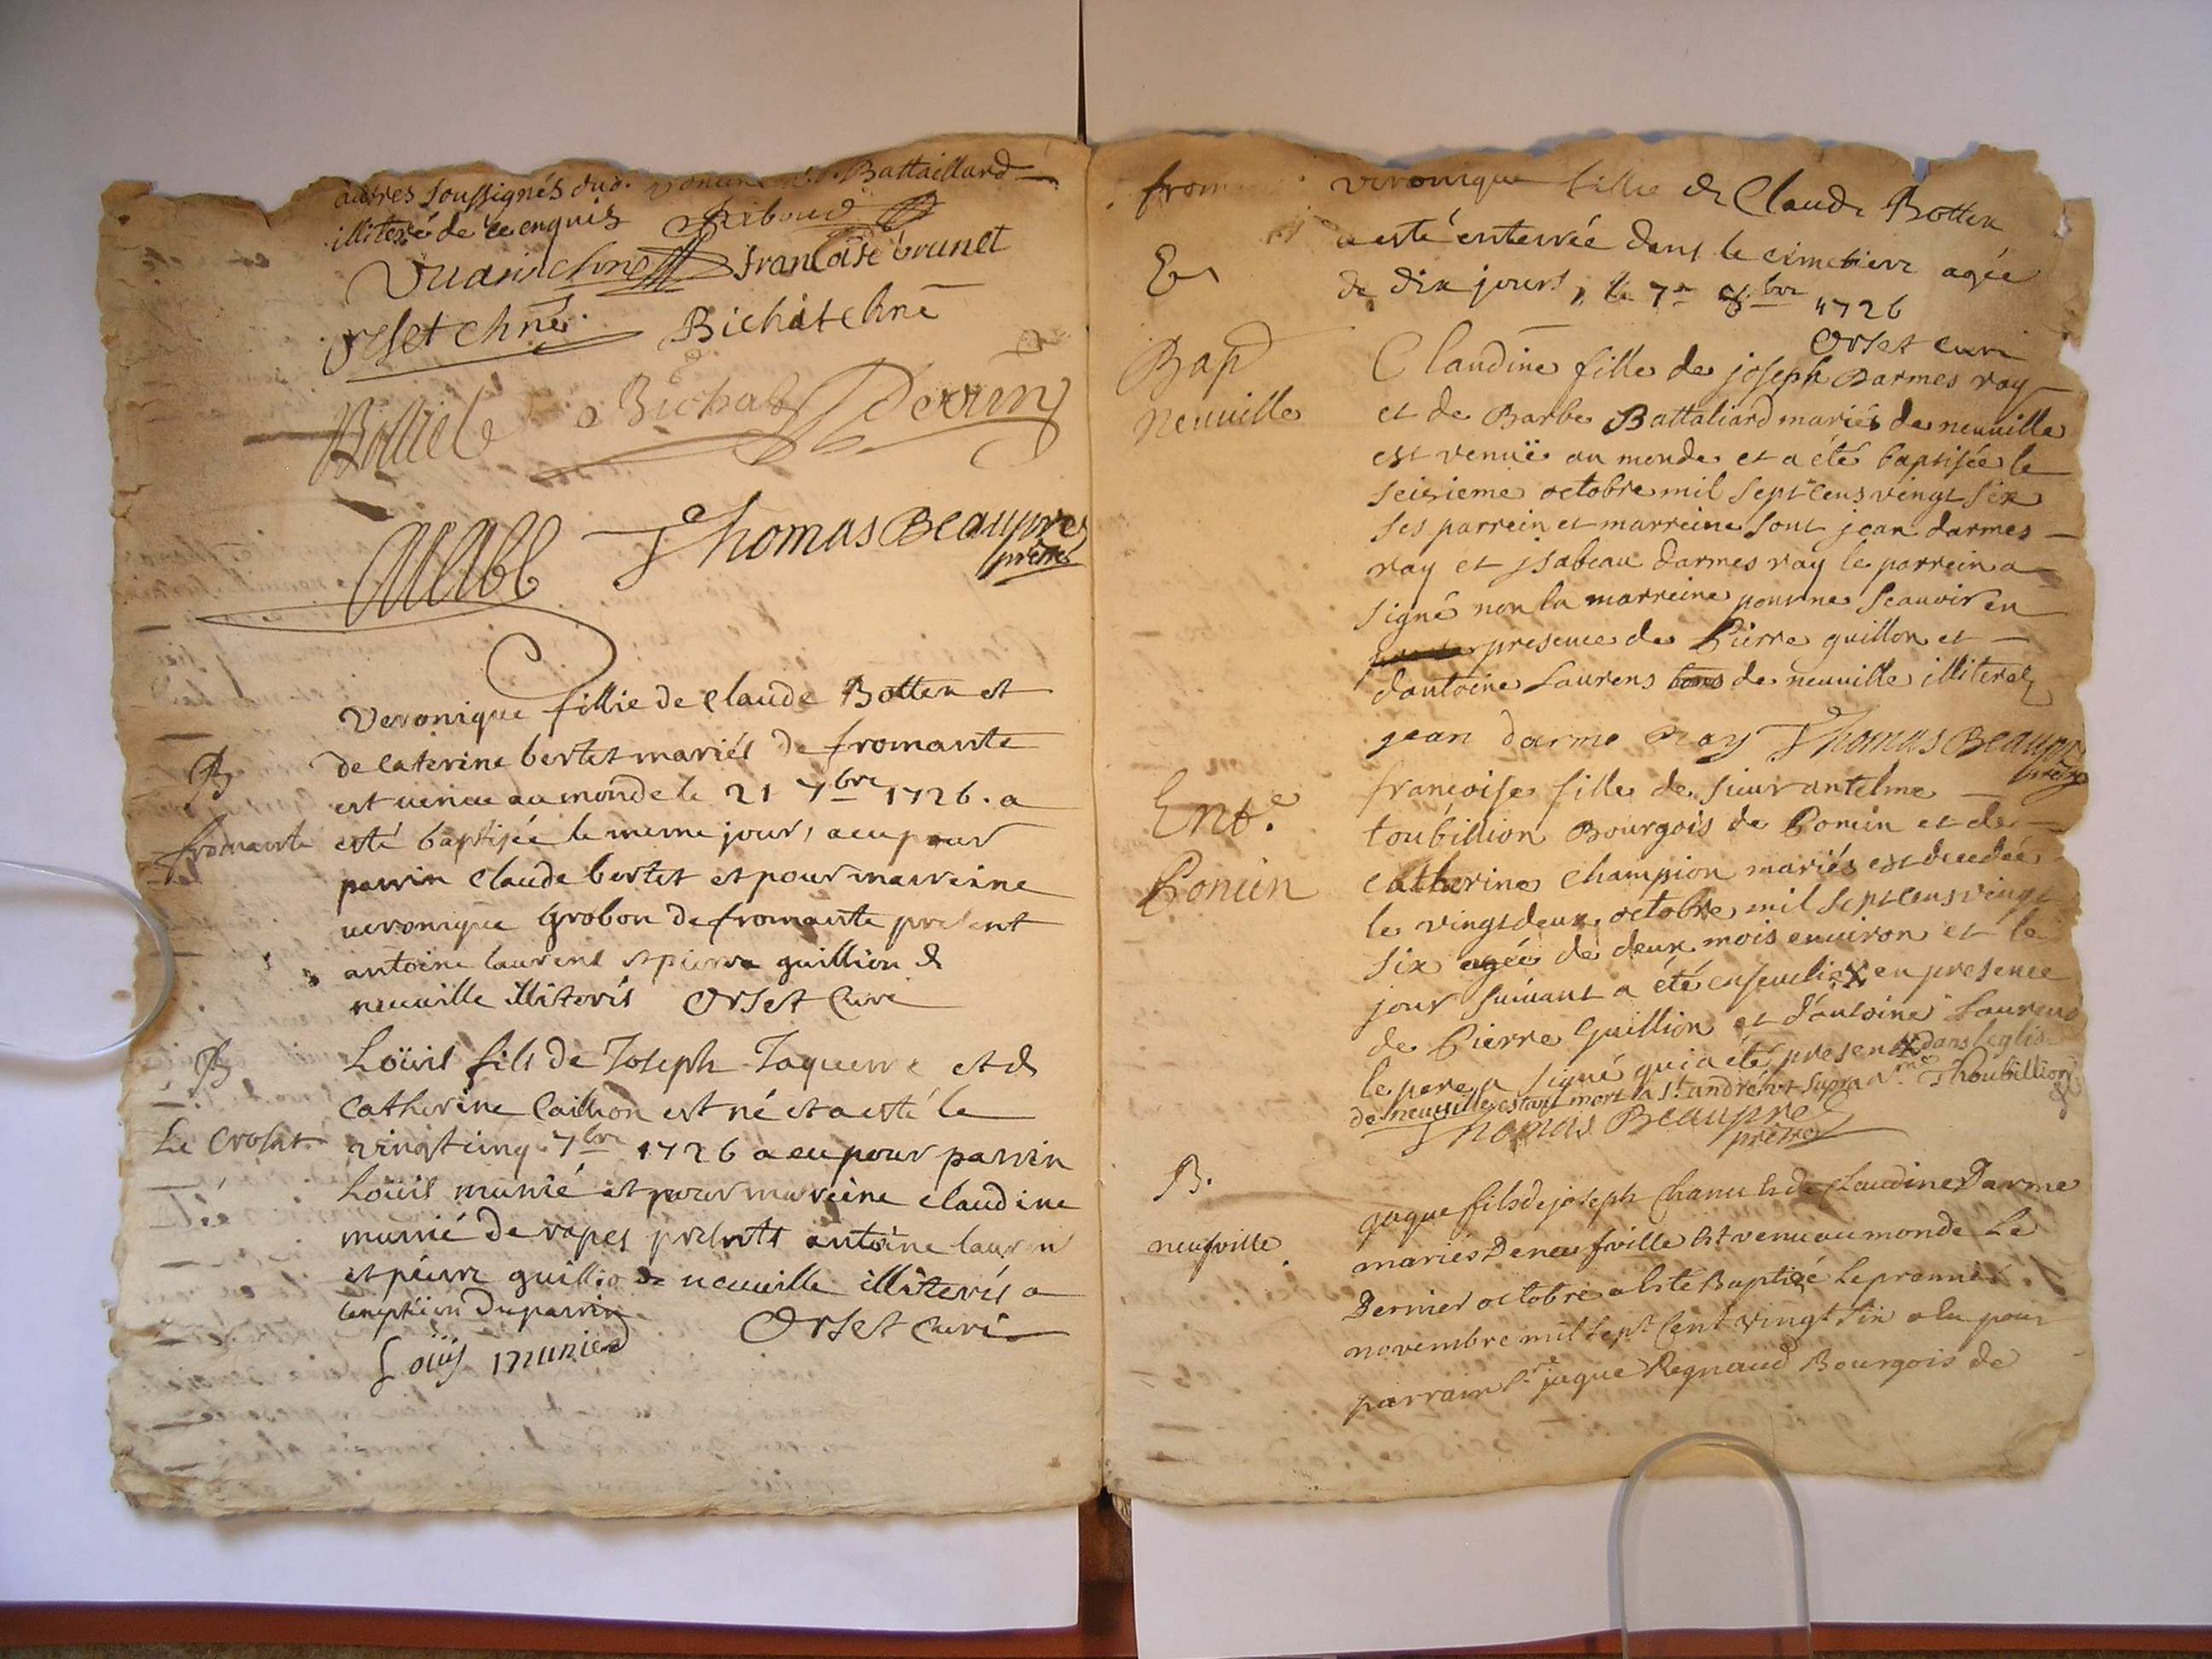 autres soussignés Battaillard
illiteré de ce enquis Riboud
Vuarin chne françoise brunet
orset chne. Bichat chne
Bichat Perrin
Thomas Beaupré
prêtre
B
fromante
Veronique fillie de claude Botten et
de caterine bertet mariés de fromante
est venue au monde le 21 7bre 1726. a
esté baptisée le meme jour, a eu pour
parrin claude bertet et pour marreine
veronique grobon de fromante present
antoine laurens et pierre guillion de
neuville illiterés Orset Curé
B
Le Crosat
Loüis fils de Joseph Taquerre et de
Catherine Caillion est né et a esté le
vingt cinq 7bre 1726 a eu pour parrin
Loüis munié et pour mareine claudine
munié de rapes presents antoine lauren
et pierre guillio de neuville illiterés a
lexeptiion du parrin
Orset Curé
Loüis munier
from
E
Veronique fillie de Claude Botten
a esté enterrée dans le cimetiere agée
de dix jours, le 7e 8bre 1726
Orset curé
Bap
Neuville
Claudine fille de joseph Darmes ray
et de Barbe Battaliard mariés de neuuille
est venuë au monde et a été baptisée le
seizieme octobre mil sept cens vingt six
ses parrein et marreine sont jean darmes
ray et jsabeau darmes ray le parrein a
signé non la marreine pour ne scauoir en
presence de Pierre guillon et
dantoine Laurens de neuuille illiterez
jean darme Ray Thomas Beaupré
prêtre
Ent.e
Poncin
françoise fille de sieur antelme
toubillion Bourgois de Poncin et de
catherine champion mariés est decedée
le vingt deux octobre mil sept cens vingt
six agée de deux mois enuiron et le
jour suiuant a été enseuelie x en presence
de Pierre Guillion et d'antoine Laurens
le pere a signé qui a été present x dans leglise
de neuuille estant mort a St andré ut supra Thoubillion
Thomas Beaupré
prêtre
B.
neufville
jaque fils de joseph Chanu et de Claudine Darme
mariés De neufville Est venu au monde Le
Dernier octobre a Esté Baptizé Le premier
novembre mil sept Cent vingt Six a Eu pour
parrain Sr jaque Regnaud Bourgois de